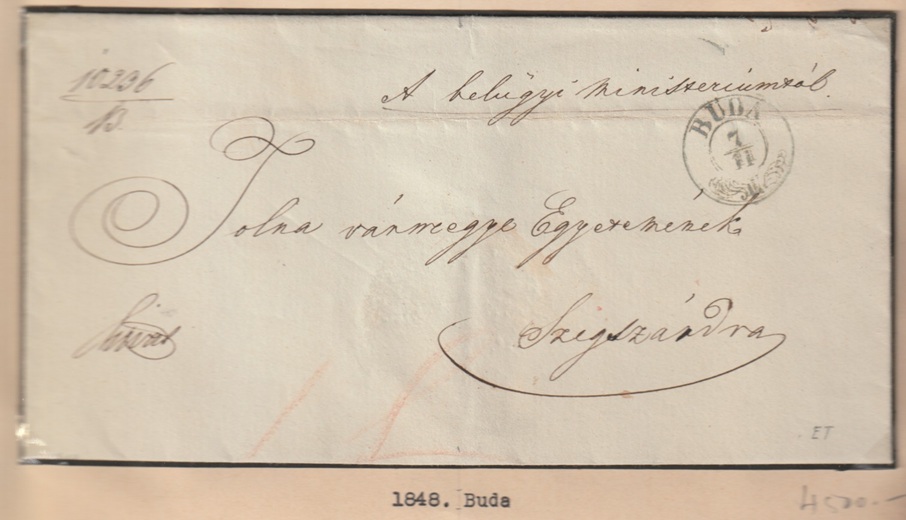 10236
B.
A belügyi Ministeriumtól.
BUDA
7
11
Tolna vármegye Egyetemének
Szegszárdra
ET
1848. Buda
4500.-